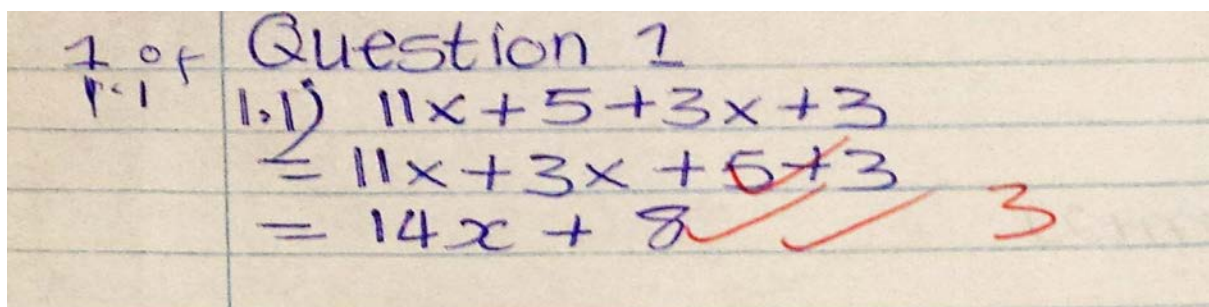 1 of Question 1
1.1 1.1) 11x + 5 + 3x + 3
= 11x + 3x + 5 + 3
= 14x + 8 3